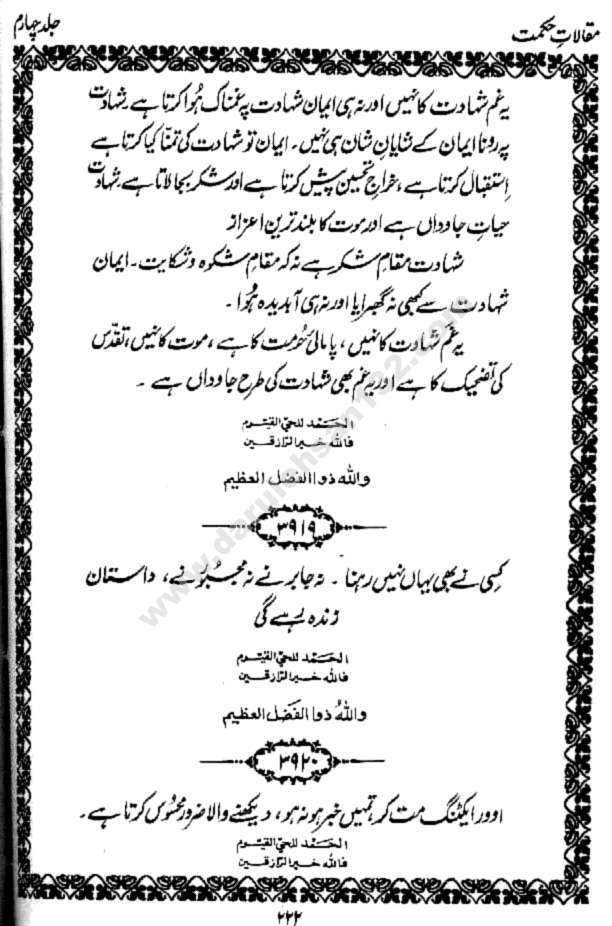 مقالاتِ حکمت
جلد چہارم
یہ غم شہادت کا نہیں اور نہ ہی ایمان شہادت پہ غمناک ہُوا کرتا ہے۔ شہادت
پہ رونا ایمان کے شایانِ شان ہی نہیں۔ ایمان تو شہادت کی تمنا کیا کرتا ہے
اِستقبال کرتا ہے، خراجِ تحسین پیش کرتا ہے اور شکر بجا لاتا ہے۔ شہادت
حیاتِ جاوداں ہے اور موت کا بلند ترین اعزاز
شہادت مقامِ شکر ہے نہ کہ مقامِ شکوہ و شکایت۔ ایمان
شہادت سے کبھی نہ گھبرایا اور نہ ہی آبدیدہ ہُوا۔
یہ غم شہادت کا نہیں، پامالئ حُرمت کا ہے، موت کا نہیں، تقدّس
کی تضحیک کا ہے اور یہ غم بھی شہادت کی طرح جاوداں ہے۔
الحَمد للحیّ القیّوم
فاللہ خیر الرّازقین
واللہ ذوالفضل العظیم
۳۹۱۹
کِسی نے بھی یہاں نہیں رہنا۔ نہ جابر نے نہ مجبُور نے، داستان
زندہ رہے گی
الحَمد للحیّ القیّوم
فاللہ خیر الرّازقین
واللہُ ذوالفَضل العظیم
۳۹۲۰
اوور ایکٹنگ مت کر، تمہیں خبر ہو نہ ہو، دیکھنے والا ضرور محسُوس کرتا ہے۔
الحَمد للحیّ القیّوم
فاللہ خیر الرّازقین
۲۲۲
www.darulehsan132.com